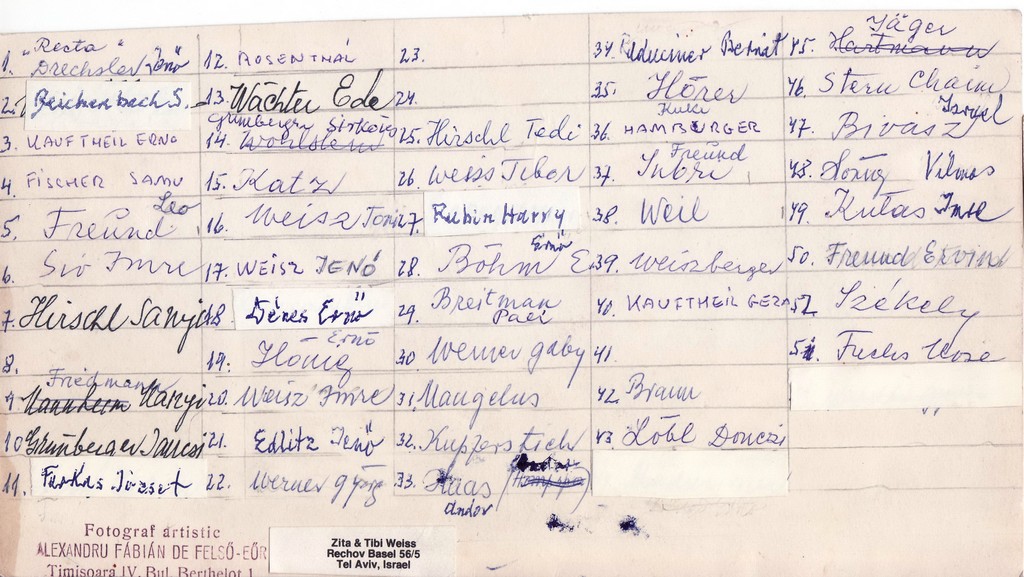 1. "Recta" Drechsler Jenö
2. Reichenbach S.
3. KAUFTHEIL ERNO
4. FISCHER SAMU
5. Freund Leo
6. Sió Imre
7. Hirschl Sanyi
8.
9. Friedmann Mannheim Sanyi
10 Grünberger Jancsi
11. Farkas József
12. ROSENTHÁL
13. Wächter Ede
14. Grünberger Wohlstein
15. Katz
16. Weisz Tomi
17. WEISZ JENÖ
18 Dénes Ernö
19. Hönig Ernö
20. Weisz Imre
21. Edlitz Jenö
22. Werner györg
23.
24.
25. Hirschl Tedi
26. Weiss Tibor
27. Rubin Harry
28. Böhm E. Ernö
29. Breitman Paci
30. Werner gaby
31. Mangelus
32. Kupferstich
33. Haas Andor
34. Bernát
35. Hörer
36. HAMBURGER
37. Freund
38. Weil
39. Weiszberger
40. KAUFTHEIL GEZA
41.
42. Braun
43. Löbl Donczi
45. Jäger Hartmann
46. Stern Chaim
47. Bivász Izrael
48. Hönig Vilmos
49. Kutas Imre
50. Freund Ervind
52. Székely
51. Fuchs
Fotograf artistic
ALEXANDRU FÁBIÁN DE FELSŐ-EŐR
Timișoara IV, Bul. Berthelot 1
Zita & Tibi Weiss
Rechov Basel 56/5
Tel Aviv, Israel